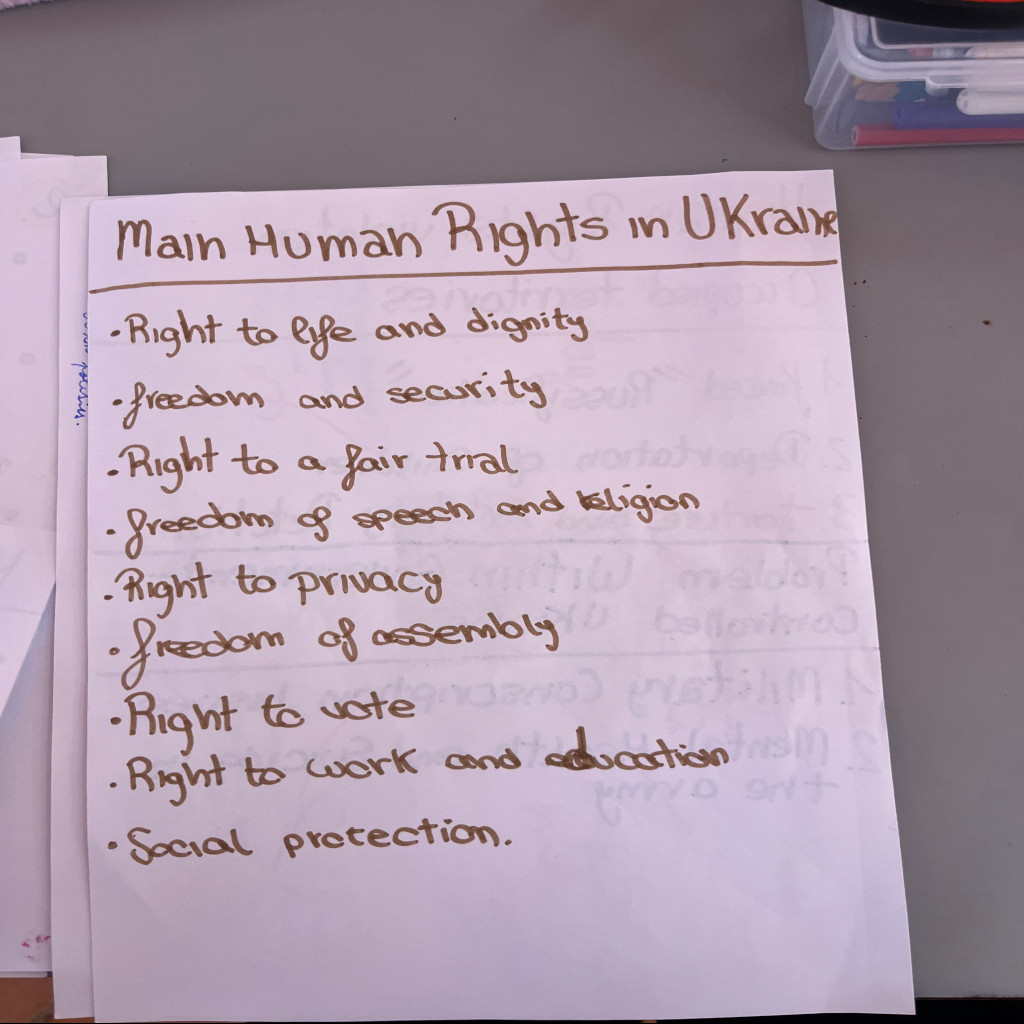 Main Human Rights in Ukraine
• Right to life and dignity
• freedom and security
• Right to a fair trial
• freedom of speech and religion
• Right to privacy
• freedom of assembly
• Right to vote
• Right to work and education
• Social protection.